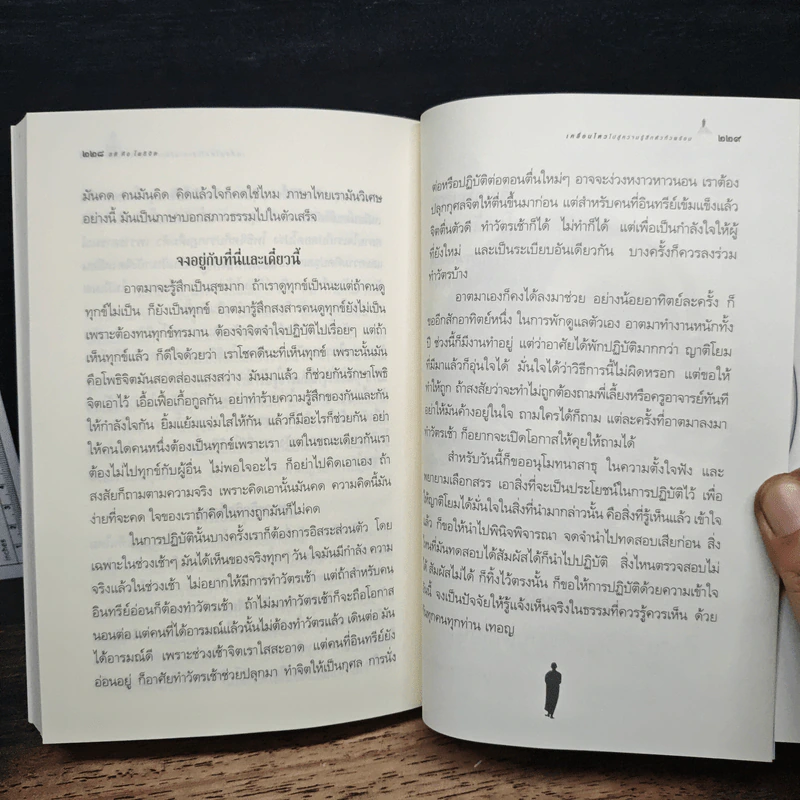 ๒๒๘
มันคด คนมันคิด คิดแล้วใจก็คดใช่ไหม ภาษาไทยเรามันวิเศษ
อย่างนี้ มันเป็นภาษาบอกสภาวธรรมไปในตัวเสร็จ
จงอยู่กับที่นี่และเดี๋ยวนี้
อาตมาจะรู้สึกเป็นสุขมาก ถ้าเราดูทุกข์เป็นนะแต่ถ้าคนดู
ทุกข์ไม่เป็น ก็ยังเป็นทุกข์ อาตมารู้สึกสงสารคนดูทุกข์ยังไม่เป็น
เพราะต้องทนทุกข์ทรมาน ต้องจำจิตจำใจปฏิบัติไปเรื่อยๆ แต่ถ้า
เห็นทุกข์แล้ว ก็ดีใจด้วยว่า เราโชคดีนะที่เห็นทุกข์ เพราะนั้นมัน
คือโพธิจิตมันสอดส่องแสงสว่าง มันมาแล้ว ก็ช่วยกันรักษาโพธิ
จิตเอาไว้ เอื้อเฟื้อเกื้อกูลกัน อย่าทำร้ายความรู้สึกของกันและกัน
ให้กำลังใจกัน ยิ้มแย้มแจ่มใสให้กัน แล้วก็มีอะไรก็ช่วยกัน อย่า
ให้คนใดคนหนึ่งต้องเป็นทุกข์เพราะเรา แต่ในขณะเดียวกันเรา
ต้องไม่ไปทุกข์กับผู้อื่น ไม่พอใจอะไร ก็อย่าไปคิดเอาเอง ถ้า
สงสัยก็ถามตามความจริง เพราะคิดเอานั้นมันคด ความคิดนี้มัน
ง่ายที่จะคด ใจของเราถ้าคิดในทางถูกมันก็ไม่คด
ในการปฏิบัตินั้นบางครั้งเราก็ต้องการอิสระส่วนตัว โดย
เฉพาะในช่วงเช้าๆ มันได้เห็นของจริงทุกๆ วัน ใจมันมีกำลัง ความ
จริงแล้วในช่วงเช้า ไม่อยากให้มีการทำวัตรเช้า แต่ถ้าสำหรับคน
อินทรีย์อ่อนก็ต้องทำวัตรเช้า ถ้าไม่มาทำวัตรเช้าก็จะถือโอกาส
นอนต่อ แต่คนที่ได้อารมณ์แล้วนั้นไม่ต้องทำวัตรแล้ว เดินต่อ มัน
ได้อารมณ์ดี เพราะช่วงเช้าจิตเราใสสะอาด แต่คนที่อินทรีย์ยัง
อ่อนอยู่ ก็อาศัยทำวัตรเช้าช่วยปลุกมา ทำจิตให้เป็นกุศล การนั่ง
เคลื่อนไหวไปสู่ความรู้สึกตัวทั่วพร้อม
๒๒๙
ต่อหรือปฏิบัติต่อตอนตื่นใหม่ๆ อาจจะง่วงหงาวหาวนอน เราต้อง
ปลุกกุศลจิตให้ตื่นขึ้นมาก่อน แต่สำหรับคนที่อินทรีย์เข้มแข็งแล้ว
จิตตื่นตัวดี ทำวัตรเช้าก็ได้ ไม่ทำก็ได้ แต่เพื่อเป็นกำลังใจให้ผู้
ที่ยังใหม่ และเป็นระเบียบอันเดียวกัน บางครั้งก็ควรลงร่วม
ทำวัตรบ้าง
อาตมาเองก็คงได้ลงมาช่วย อย่างน้อยอาทิตย์ละครั้ง ก็
ขออีกสักอาทิตย์หนึ่ง ในการพักดูแลตัวเอง อาตมาทำงานหนักทั้ง
ปี ช่วงนี้ก็มีงานทำอยู่ แต่ว่าอาศัยได้พักปฏิบัติมากกว่า ญาติโยม
ที่มีมาแล้วก็อุ่นใจได้ มั่นใจได้ว่าวิธีการนี้ไม่ผิดหรอก แต่ขอให้
ทำให้ถูก ถ้าสงสัยว่าจะทำไม่ถูกต้องถามพี่เลี้ยงหรือครูอาจารย์ทันที
อย่าให้มันค้างอยู่ในใจ ถามใครได้ก็ถาม แต่ละครั้งที่อาตมาลงมา
ทำวัตรเช้า ก็อยากจะเปิดโอกาสให้คุยให้ถามได้
สำหรับวันนี้ก็ขออนุโมทนาสาธุ ในความตั้งใจฟัง และ
พยายามเลือกสรร เอาสิ่งที่จะเป็นประโยชน์ในการปฏิบัติไว้ เพื่อ
ให้ญาติโยมได้มั่นใจในสิ่งที่นำมากล่าวนั้น คือสิ่งที่รู้เห็นแล้ว เข้าใจ
แล้ว ก็ขอให้นำไปพินิจพิจารณา จดจำนำไปทดสอบเสียก่อน สิ่ง
ไหนที่มันทดสอบได้สัมผัสได้ก็นำไปปฏิบัติ สิ่งไหนตรวจสอบไม่
ได้ สัมผัสไม่ได้ ก็ทิ้งไว้ตรงนั้น ก็ขอให้การปฏิบัติด้วยความเข้าใจ
นี้ จงเป็นปัจจัยให้รู้แจ้งเห็นจริงในธรรมที่ควรรู้ควรเห็น ด้วย
กันทุกคนทุกท่าน เทอญ